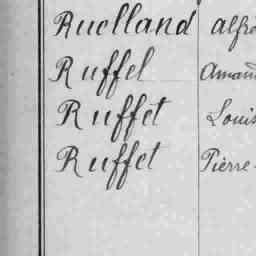 Ruelland Alfre
Ruffel Amand
Ruffet Louis
Ruffet Pierre